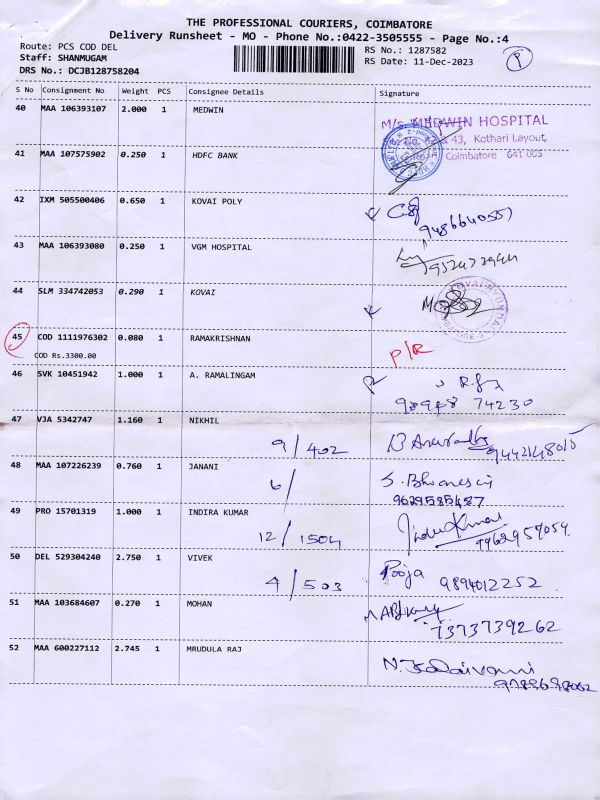 THE PROFESSIONAL COURIERS, COIMBATORE
Delivery Runsheet - MO - Phone No.:0422-3505555 - Page No.:4
Route: PCS COD DEL
RS No.: 1287582
Staff: SHANMUGAM
RS Date: 11-Dec-2023
DRS No.: DCJB128758204
S No Consignment No Weight PCS Consignee Details Signature
40 MAA 106393107 2.000 1 MEDWIN
M/s. MEDWIN HOSPITAL
& 43, Kothari Layout,
Coimbatore 641 005
41 MAA 107575902 0.250 1 HDFC BANK
42 IXM 505500406 0.650 1 KOVAI POLY
9486640557
43 MAA 106393080 0.250 1 VGM HOSPITAL
44 SLM 334742053 0.290 1 KOVAI
45 COD 1111976302 0.080 1 RAMAKRISHNAN
COD Rs.3300.00
P/R
46 SVK 10451942 1.000 1 A. RAMALINGAM
74230
47 VJA 5342747 1.160 1 NIKHIL
9/402
9442148015
48 MAA 107226239 0.760 1 JANANI
6/
9629585487
49 PRO 15701319 1.000 1 INDIRA KUMAR
12/1504 Indu Kumar
9962957054
50 DEL 529304240 2.750 1 VIVEK
4/503 Pooja 9894012252
51 MAA 103684607 0.270 1 MOHAN
7373739262
52 MAA 600227112 2.745 1 MRUDULA RAJ
9789698062